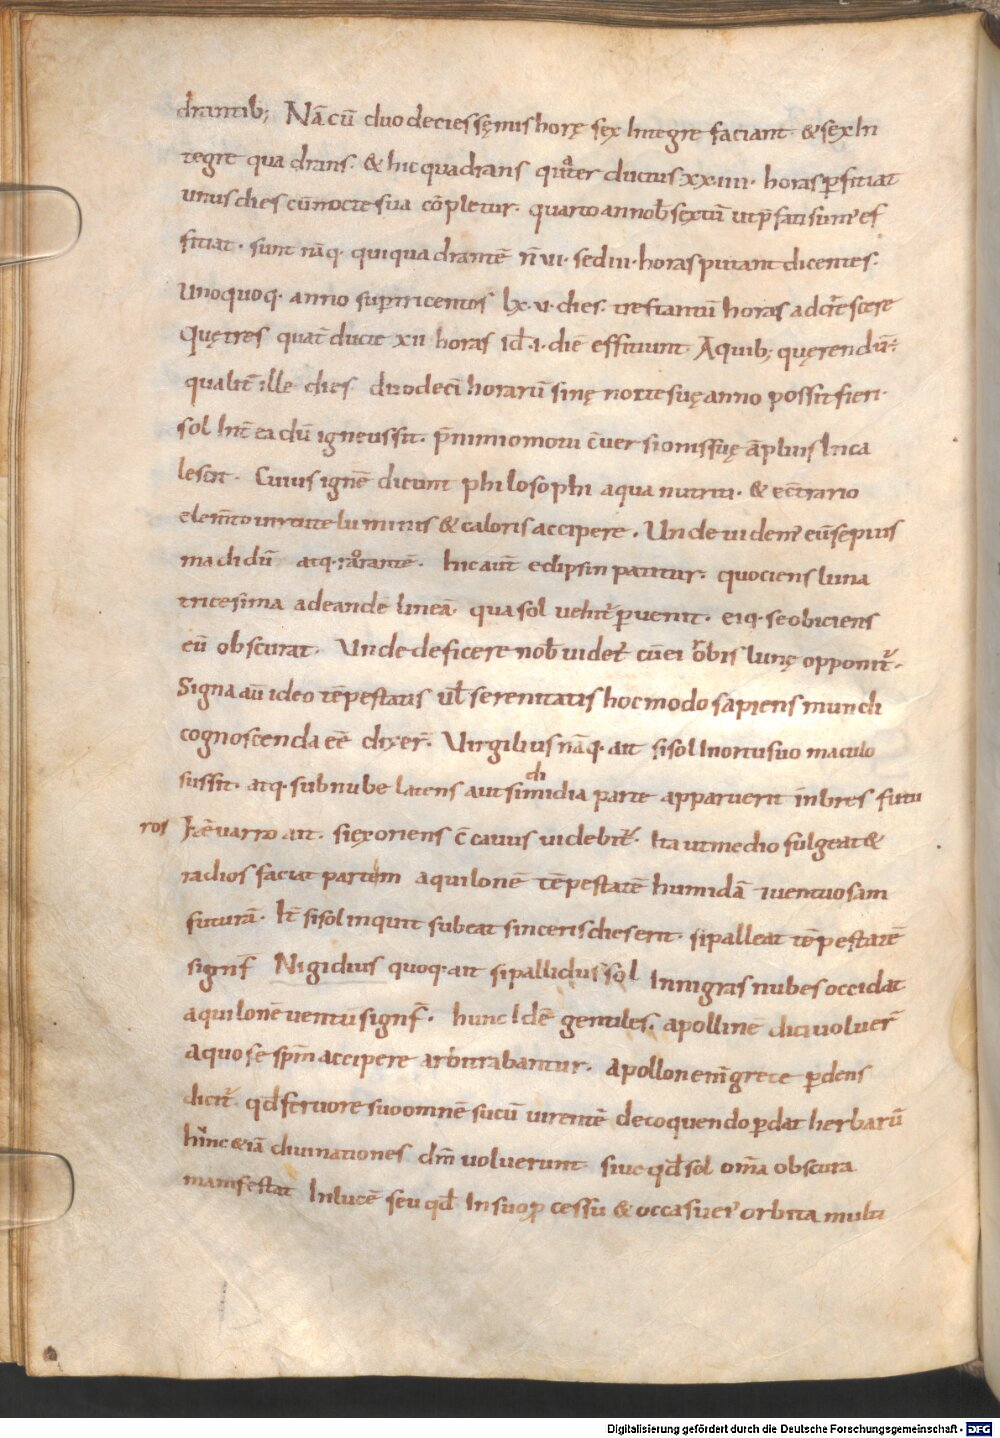 drantib; Nā cū duodecies sęmis horę sex integre faciant & sex in
tegre quadrans. & hic quadrans quater ductus xx.iiii. horas perfitiat
unus dies cū nocte sua cōpletur. quarto anno b̄sextū ut p̄fati sum' ef
fitiat. sunt nāq. qui quadrantē n̄ vi. sed iii. horas putant dicentes.
Unoquoq. anno super tricentos lx.v. dies. tres tantū horas adcrescere
Quę tres quat̄ ducte xii horas id. i. diē effitiunt. A quib; quęrendū:
qualit̄ ille dies duodecī horarū sinę nocte suę anno possit fieri.
sol int̄ ea dū igneus sit. p̄ nimio motu c̄uersionis suę āplius inca
lescit. Cuius ignē dicunt philosophi aqua nutriri. & e c̄trario
elem̄to uirtute luminis & caloris accipere. Unde uidem' eū sępius
madidū atq. rorantē. hic aūt eclipsin patitur. quociens luna
tricesima ad eandē lineā. qua sol uehit' peruenit. eiq. se obiciens
eū obscurat. Unde deficere nob̄ uidet' cū ei orbis lunę opponit'.
Signa aū ideo tēpestatis ul̄ serenitatis hoc modo sapiens mundi
cognoscenda eē dixer̄. Virgilius nāq. ait si sol in ortu suo maculo
sus sit. atq. sub nube latens aut si dimidia parte apparuerit inbres futu
ros Itē uarro ait. si exoriens c̄cauus uidebit'. Ita ut medio fulgeat &
radios faciat partem aquilonē tēpestatē humidā i uentuosam
futurā. It̄ si sol inquit subeat sinceris dies erit. si palleat tēpestatē
signf̄ Nigidius quoq. ait si pallidus sol in nigras nubes occidat
aquilonē uentū signf̄. hunc idē gentiles. apollinē dici uoluer̄
a quo se sp̄m accipere arbitrabantur. apollon eni grece perdens
dicit' qd̄ feruore suo omnē sucū uirentē decoquendo perdat herbarū
hinc & iā diuinationes dm̄ uoluerunt siue qd̄ sol om̄a obscura
manifestat In lucē seu qd̄ In suo processu & occasu ei' orbita multi